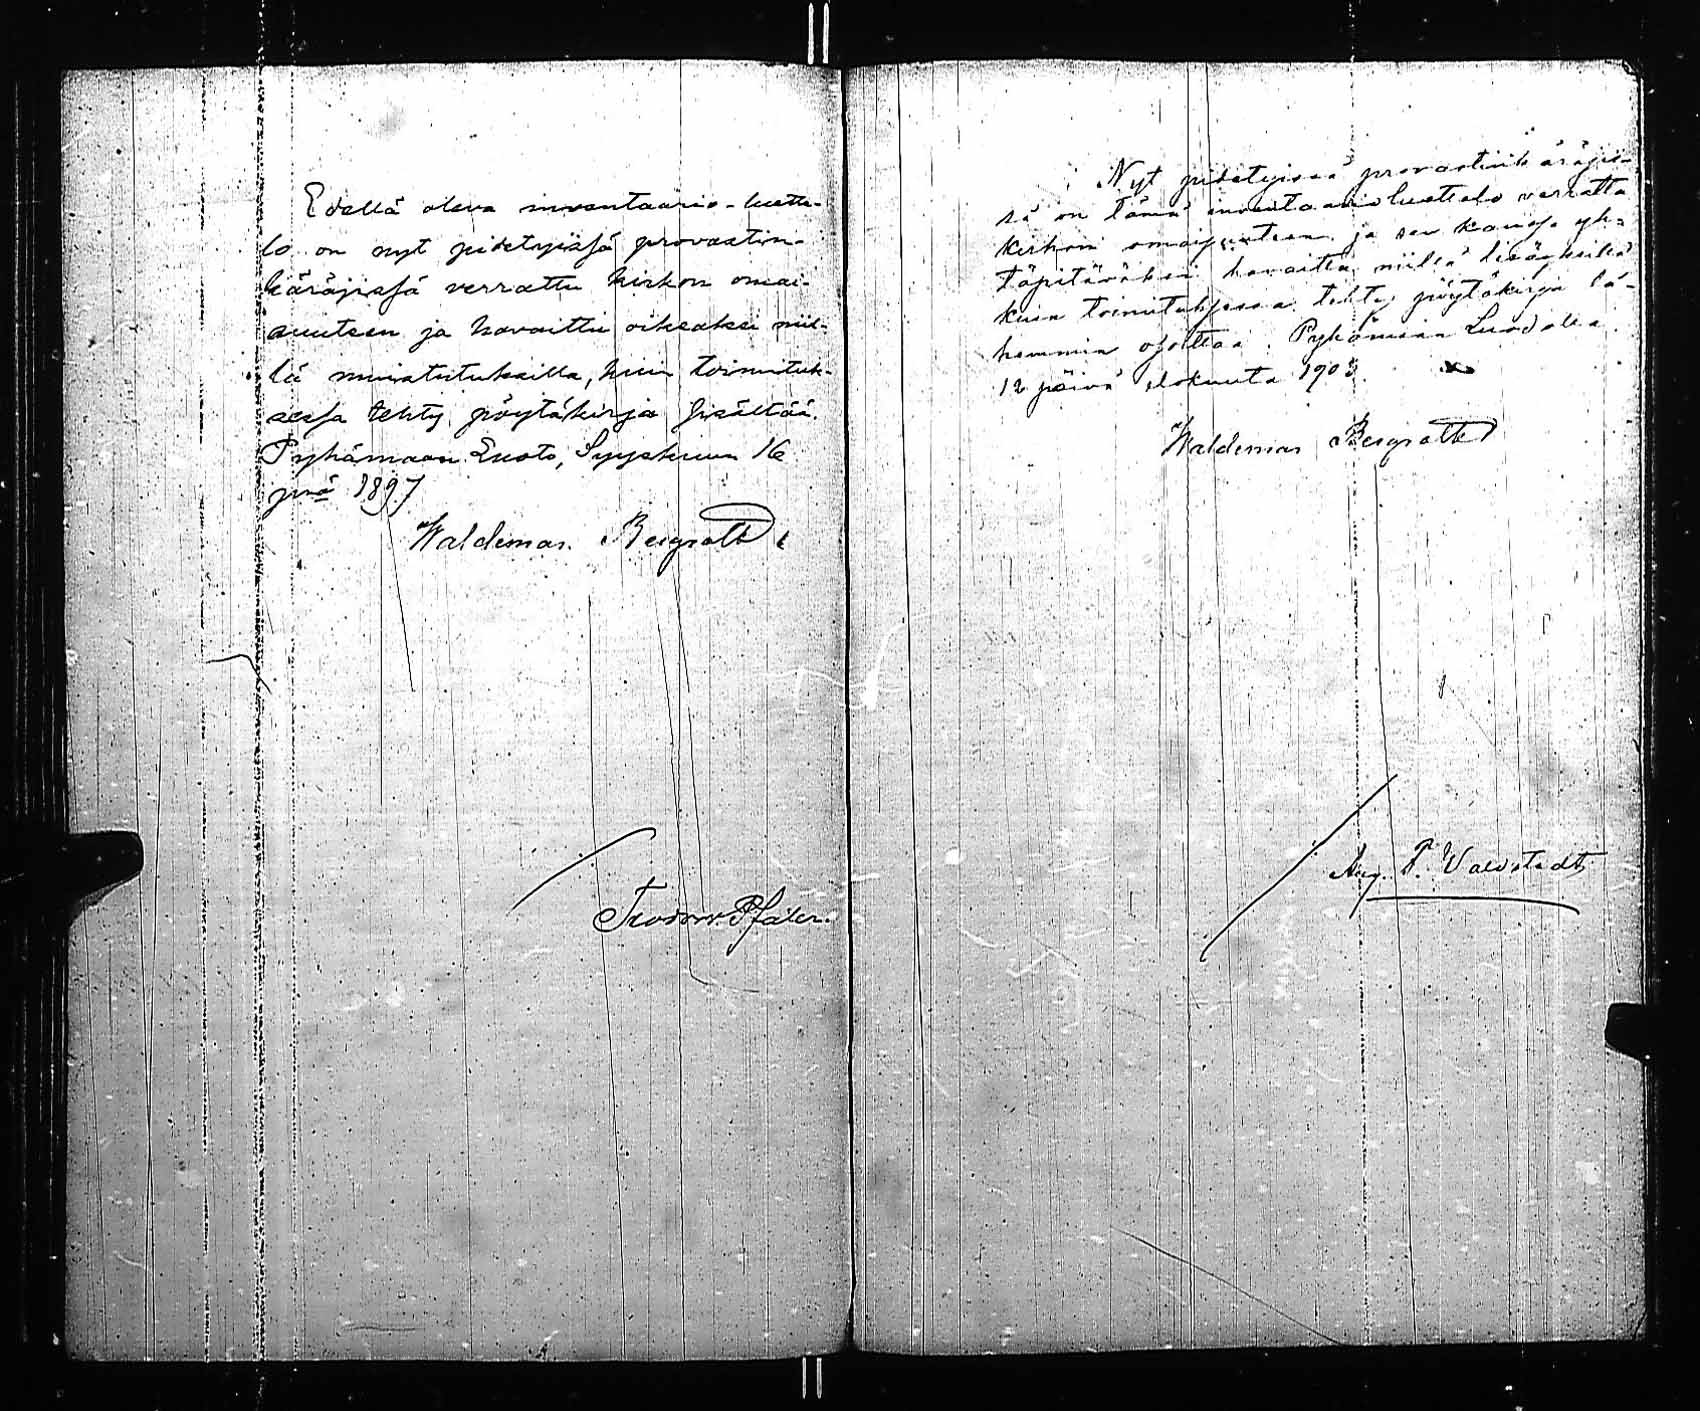 Edellä oleva inventaario-luette-
lo on nyt pidetyissä provastin-
käräjissä verrattu kirkon omai-
suuteen ja havaittu oikeaksi niil-
lä muistutuksilla, kuin toimituk-
sessa tehty pöytäkirja sisältää.
Pyhämaan Luoto, Syyskuun 16
pnä 1897
Waldemar Bergroth
Teodor Pfaler.
Nyt pidetyissä provastink äräjis-
sä on tämä inventaarioluettelo verrattu
kirkon omaisuuteen ja sen kanssa yh-
täpitäväksi havaittu niillä lisäyksillä
kuin toimituksessa tehty pöytäkirja lä-
hemmin osoittaa. Pyhämaan Luodolla
12 päivä elokuuta 1903.
Waldemar Bergroth
Aug. F. Valvstedt